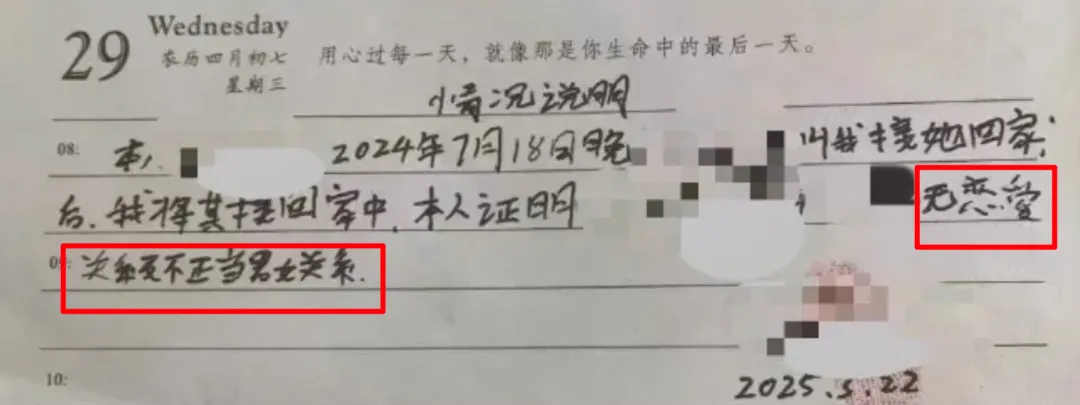 29 Wednesday
农历四月初七
星期三
用心过每一天，就像那是你生命中的最后一天。
情况说明
08: 本人 2024年7月18日晚 叫我接她回家,
后,我将其接回家中,本人证明 无恋爱
09: 关系及不正当男女关系.
10:
2025.5.22